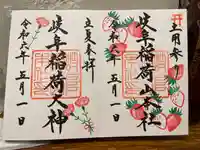 土用参り
岐阜稲荷山本社
令和六年五月一日
立夏奉拝
岐阜稲荷大神
令和六年五月一日